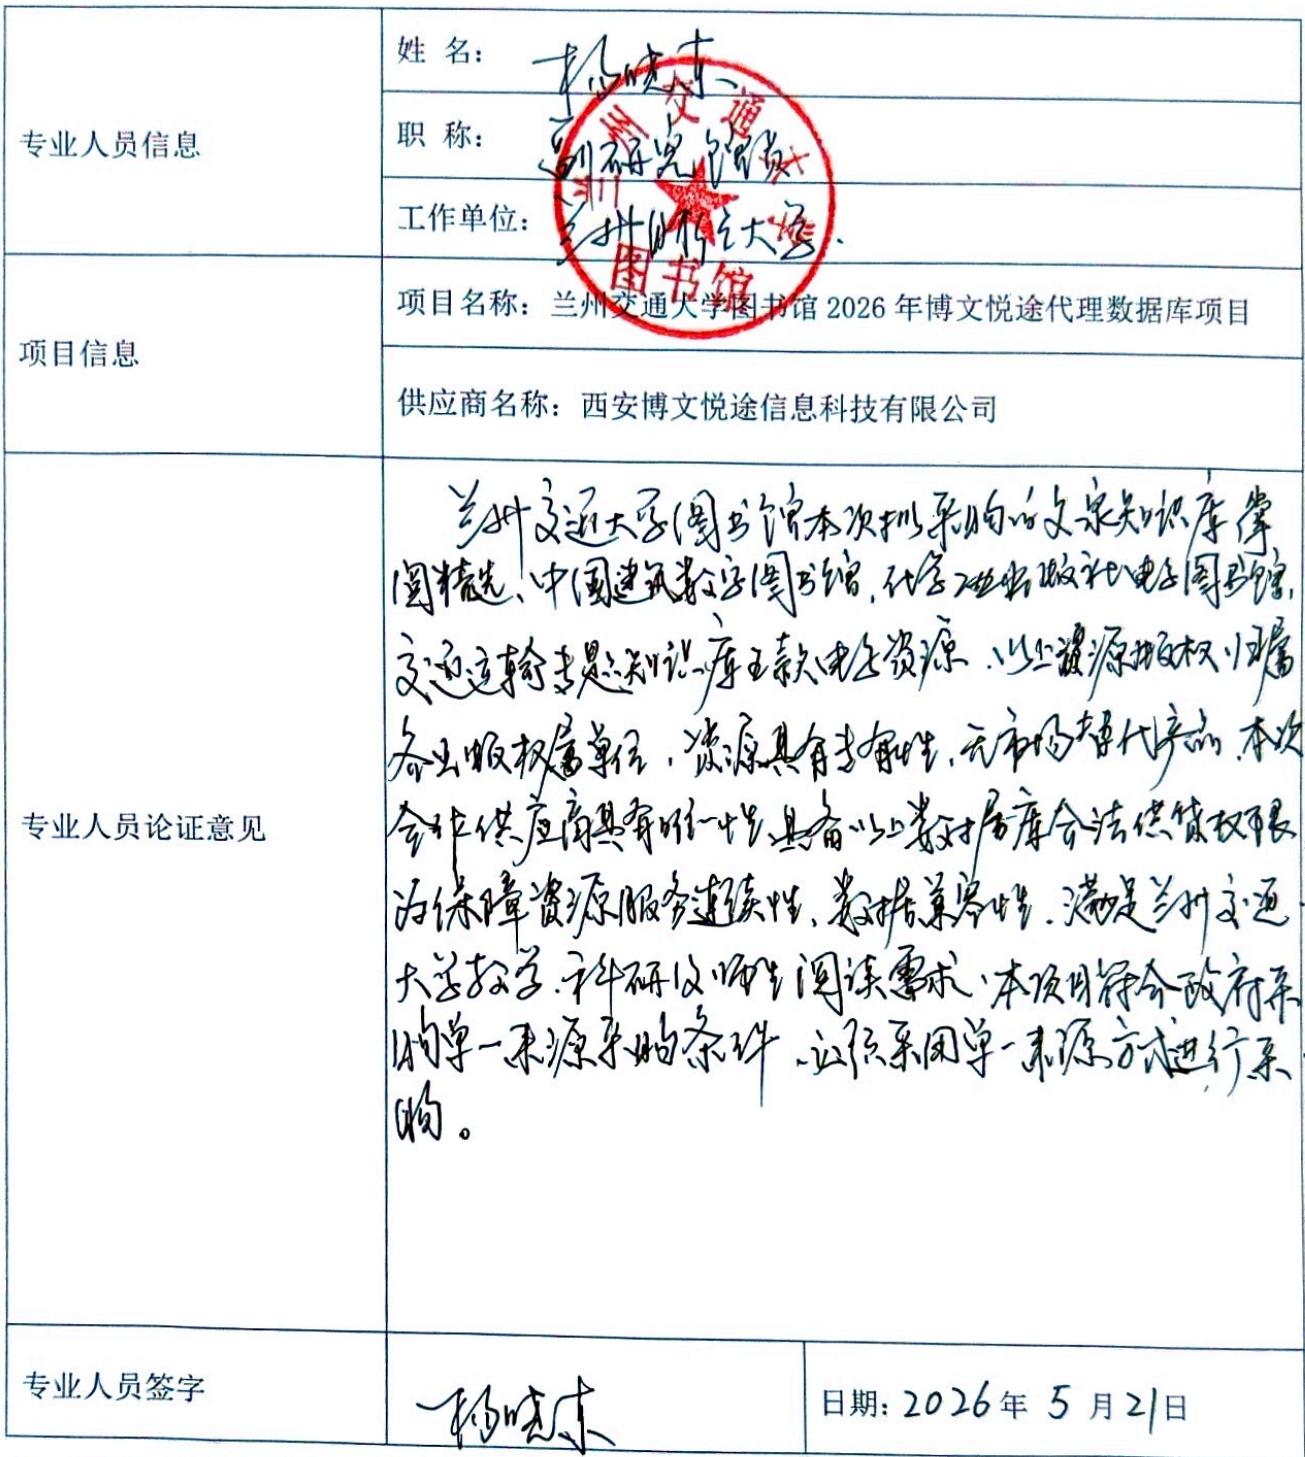 姓 名：杨晓东
职 称：副研究馆员
专业人员信息
工作单位：兰州财经大学.
兰州交通大学
图书馆
项目名称：兰州交通大学图书馆 2026 年博文悦途代理数据库项目
项目信息
供应商名称：西安博文悦途信息科技有限公司
兰州交通大学图书馆本次拟采购的文泉知识库掌
阅精选、中国建筑数字图书馆，化学工业出版社电子图书馆，
交通运输专题知识库五款电子资源、以上资源版权归属
各出版权属单位，资源具有专有性，无市场替代产品，本次
合作供应商具有唯一性，具备以上数据库合法供货权限
专业人员论证意见
为保障资源服务连续性、数据兼容性，满足兰州交通
大学教学、科研及师生阅读需求，本项目符合政府采
购单一来源采购条件，应该采用单一来源方式进行采
购。
专业人员签字
杨晓东
日期：2026 年 5 月 21 日